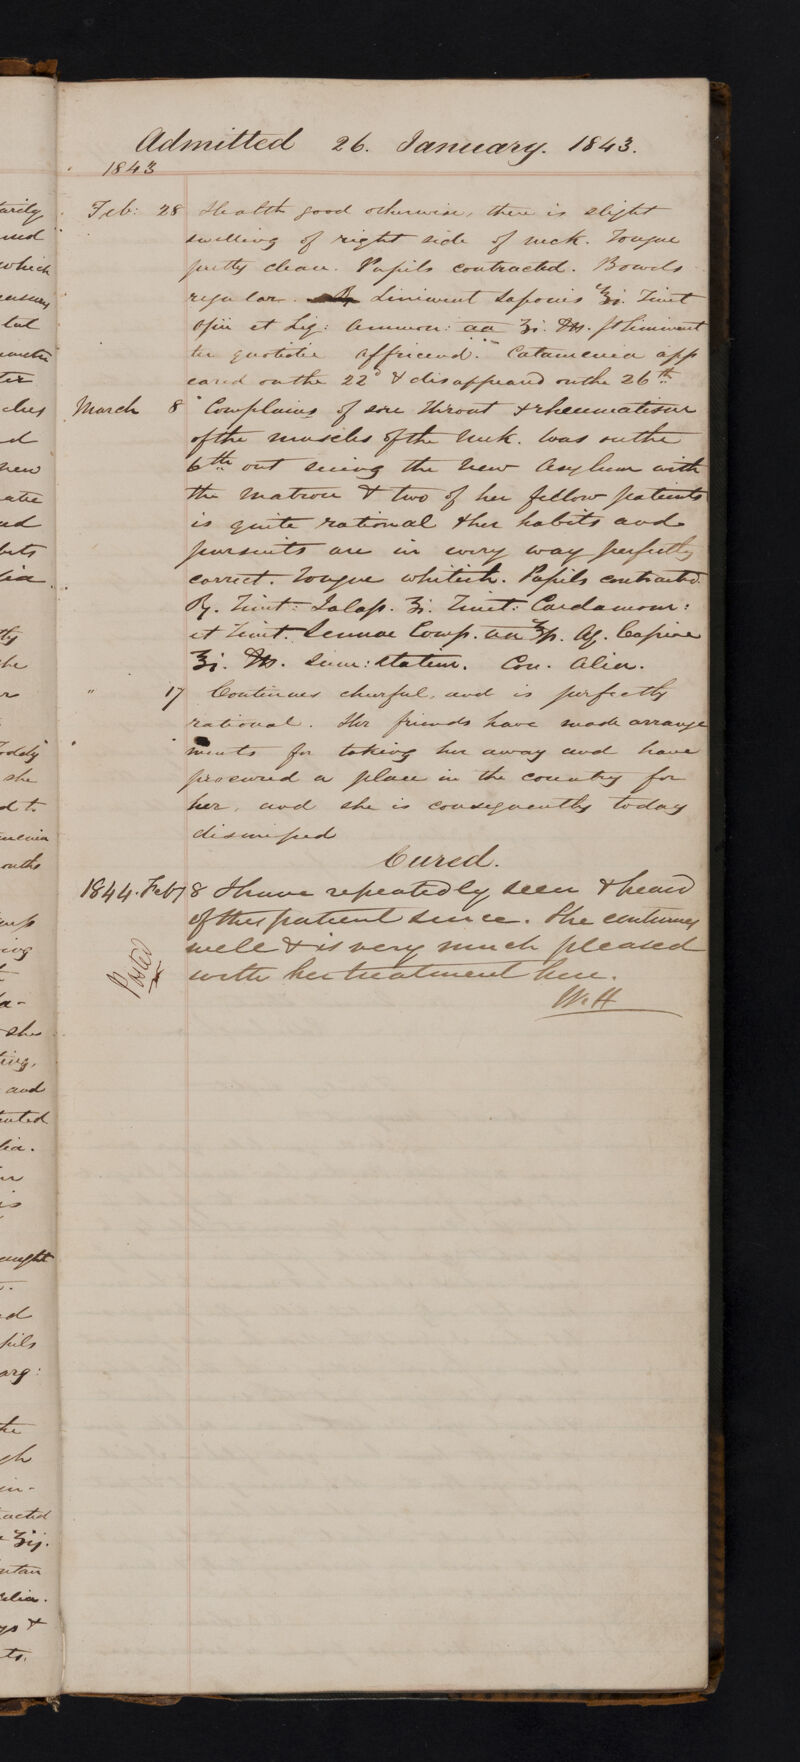 Admitted 26. January. 1843.
1843
Feb: 28 Health good otherwise, there is slight
swelling of right side of neck. Tongue
pretty clean. Pupils contracted. Bowels
regular. Liniment Saponis ℥i. Tinct
Opii et Liq: Ammon: aa ʒi. M. ft Liniment
ter quotidie affricand. Catamenia app
eared on the 22d & disappeared on the 26th
March 8 Complains of sore throat & rheumatism
of the muscles of the neck. Was on the
6th out seeing the new Asylum with
the matron & two of her fellow patients
is quite rational & her habits and
pursuits are in every way perfectly
correct. Tongue whitish. Pupils contracted
℞. Tinct: Jalap. ʒi. Tinct: Cardamom:
et Tinct. Sennae Comp. aa ʒſs. Aq.
℥i. M. Sum: statim. Con. alia.
" 17 Continues cheerful, and is perfectly
rational. Her friends have made arrange
ments for taking her away and have
procured a place in the country for
her, and she is consequently today
dismissed
Cured.
1844. Feby 8 I have repeatedly seen & heard
of this patient since. She continues
well & is very much pleased
with her treatment here.
Posted
W. H